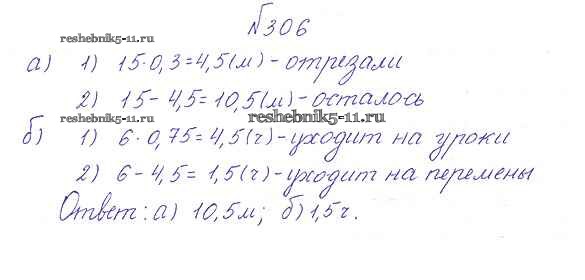 №306
reshebnik5-11.ru
а) 1) 15·0,3=4,5(м)-отрезали
2) 15-4,5=10,5(м)-осталось
reshebnik5-11.ru
б) 1) 6·0,75=4,5(ч)-уходит на уроки
2) 6-4,5=1,5(ч)-уходит на перемены
reshebnik5-11.ru
Ответ: а) 10,5м; б)1,5ч.